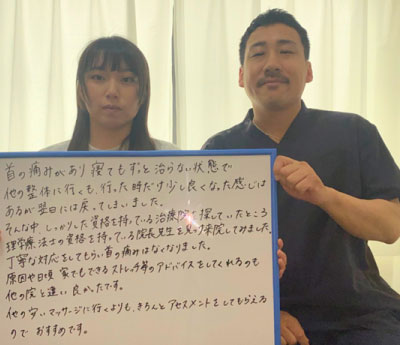 首の痛みがあり寝てもずっと治らない状態で
他の整体に行くも、行った時だけ少し良くなった感じは
あるが翌日には戻ってしまいました。
そんな中、しっかりした資格を持っている治療院を探していたところ
理学療法士の資格を持っている院長先生を見つけ来院してみました。
丁寧な対応をしてもらい首の痛みはなくなりました。
原因や日頃家でもできるストレッチ等のアドバイスをしてくれるのも
他の院と違い良かったです。
他の安いマッサージに行くよりも、きちんとアセスメントをしてもらえる
のでおすすめです。